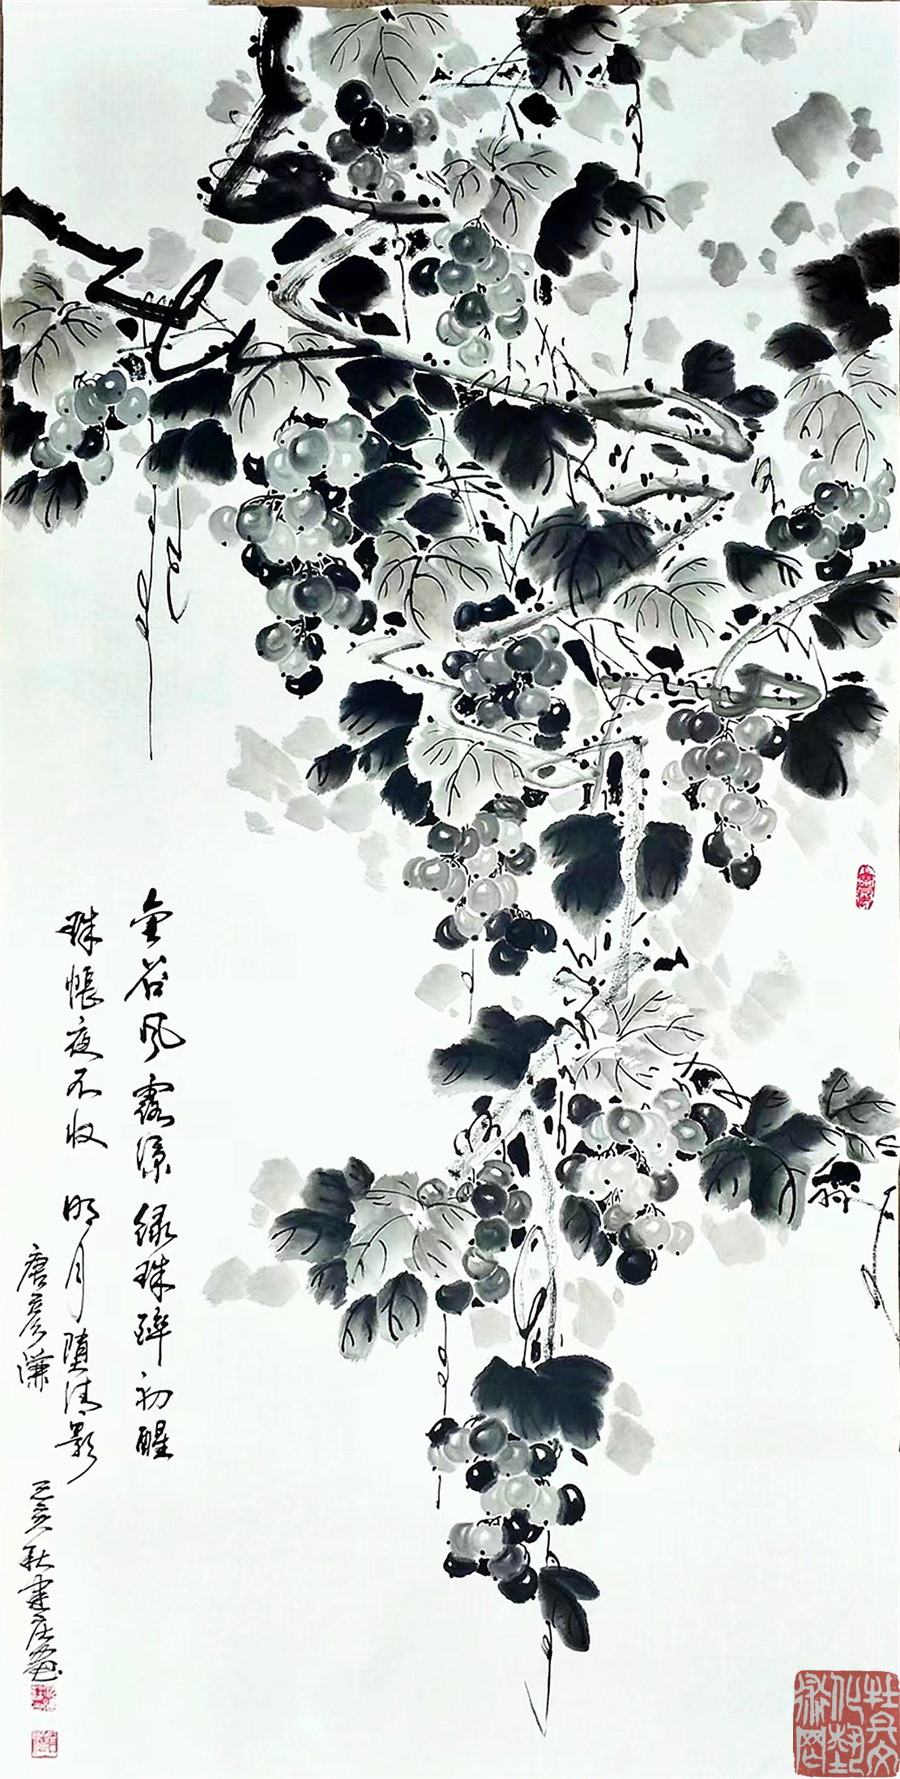 金谷风露凉绿珠醉初醒
珠帐夜不收 明月堕清影
唐彦谦
己亥秋建庄画